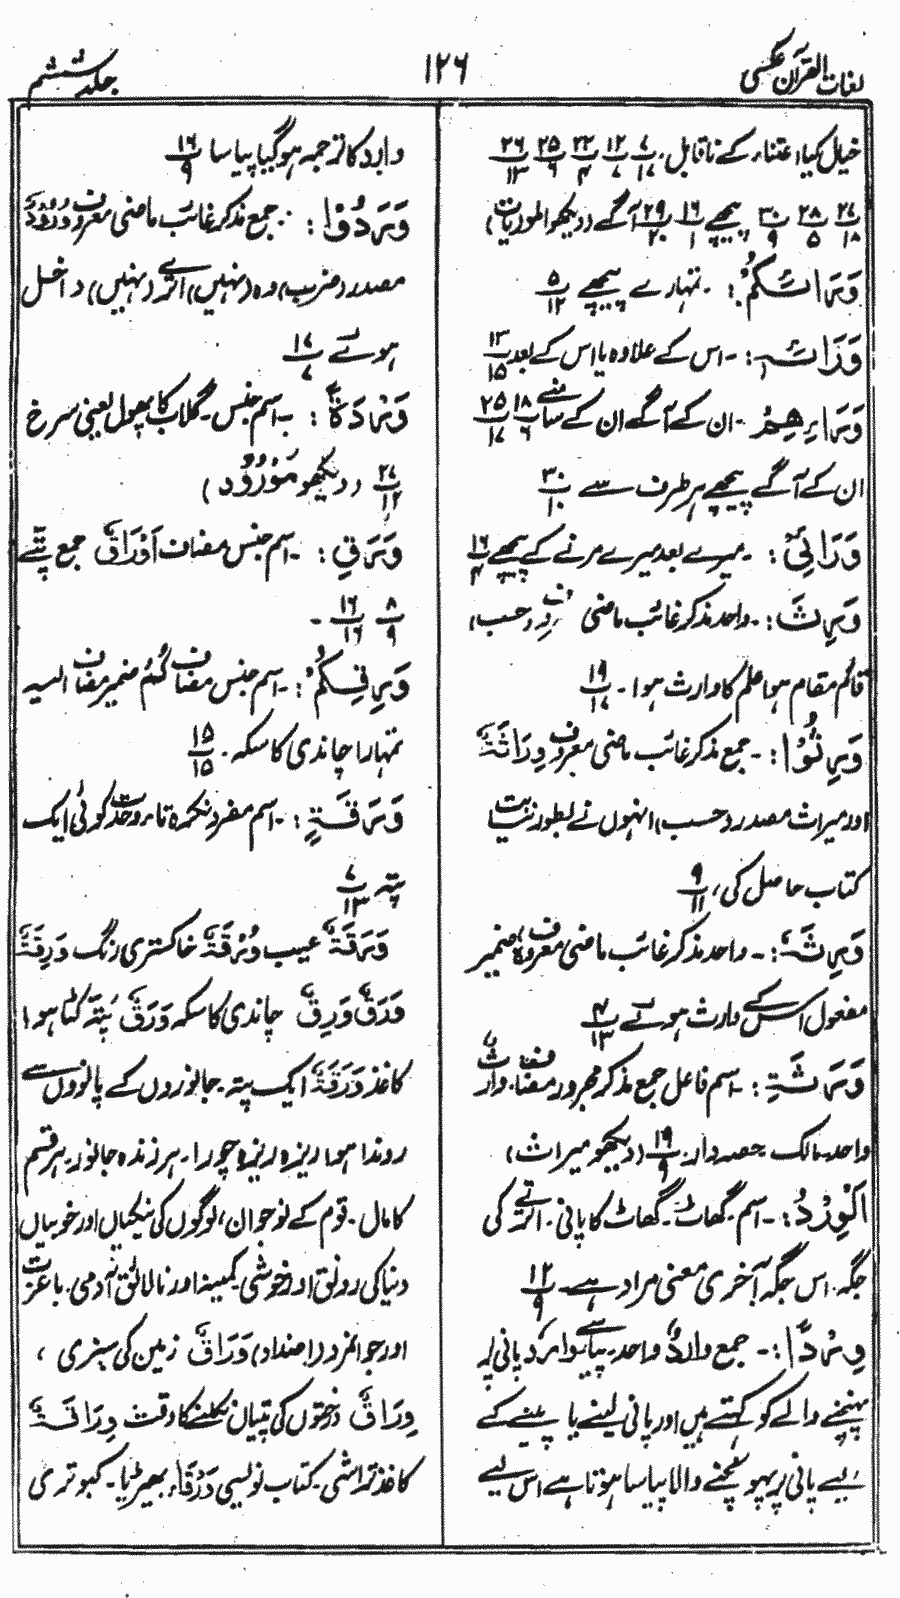 لغات القرآن عکسی
۱۲۶
جلد ششم
خیال کیا اعتناء کے نا قابل.
پیچھے آگے (دیکھو الموریات)
وَرَائَكُمْ: - تمہارے پیچھے ۵/۱۲
وَرَائَهٗ: - اس کے علاوہ یا اس کے بعد ۱۳/۱۵
وَرَاءِهِمْ: - ان کے آگے ان کے سامنے ۱۸/۶ ۲۵/۱۷
ان کے آگے پیچھے ہر طرف سے ۳۰/۱۰
وَرَائِیْ: - میرے بعد میرے مرنے کے پیچھے ۱۶/۴
وَرِثَ: - واحد مذکر غائب ماضی (حسب)
قائم مقام ہوا علم کا وارث ہوا - ۱۹/۱۷
وَرِثُوْا: - جمع مذکر غائب ماضی معروف وِرَاثَةٌ
اور میراث مصدر (حسب) انہوں نے بطور نیابت
کتاب حاصل کی، ۹/۱۱
وَرِثَهٗ: - واحد مذکر غائب ماضی معروف ہ ضمیر
مفعول اس کے وارث ہوتے ۴/۱۳
وَرَثَةِ: - اسم فاعل جمع مذکر مجرور مضاف، وارث
واحد - مالک حصہ دار - ۱۹/۹ (دیکھو میراث)
اَلْوِرْدُ: - اسم - گھاٹ - گھاٹ کا پانی - اترنے کی
جگہ - اس جگہ آخری معنی مراد ہے - ۱۲/۹
وِرْدًا: - جمع وارد واحد - پیاسے وارد پانی پر
پہنچنے والے کو کہتے ہیں اور پانی لینے یا پینے کے
لیے پانی پر پہونچنے والا پیاسا ہوتا ہے اس لیے
وارد کا ترجمہ ہو گیا پیاسا ۱۶/۹
وَرَدُوْا: - جمع مذکر غائب ماضی معروف وُرُوْدٌ
مصدر (ضرب) وہ (نہیں) اترے (نہیں) داخل
ہوتے ۱۷/۷
وَرْدَةً: - اسم جنس - گلاب کا پھول یعنی سرخ
۲۷/۱۲ (دیکھو مورود)
وَرَقِ: - اسم جنس مضاف اَوْرَاقٌ جمع پتے
۸/۹ ۱۶/۱۶ -
وَرِقِكُمْ: - اسم جنس مضاف كُمْ ضمیر مضاف الیہ
تمہارا چاندی کا سکہ - ۱۵/۱۵
وَرَقَةٍ: - اسم مفرد نکرہ تاء وحدت کوئی ایک
پتہ ۷/۱۳
وَرَقَةٌ عیب وُرْقَةٌ خاکستری رنگ وَرِقَةٌ
وَرَقٌ وَرِقٌ چاندی کا سکہ وَرَقٌ پتہ کٹا ہوا
کاغذ وَرَقَةٌ ایک پتہ - جانوروں کے پالنوں سے
روندا ہوا ریزہ ریزہ چورا - ہر زندہ جانور - ہر قسم
کا مال - قوم کے نوجوان، لوگوں کی نیکیاں اور خوبیاں
دنیا کی رونق اور خوشی - کمینہ اور نالائق آدمی - با عزت
اور جوانمرد (اضداد) وَرَاقٌ زمین کی سبزی،
وِرَاقٌ درختوں کی پتیاں نکلنے کا وقت وِرَاقَةٌ
کاغذ تراشی - کتاب نویسی وَرْقَاءُ بھیڑیا - کبوتری